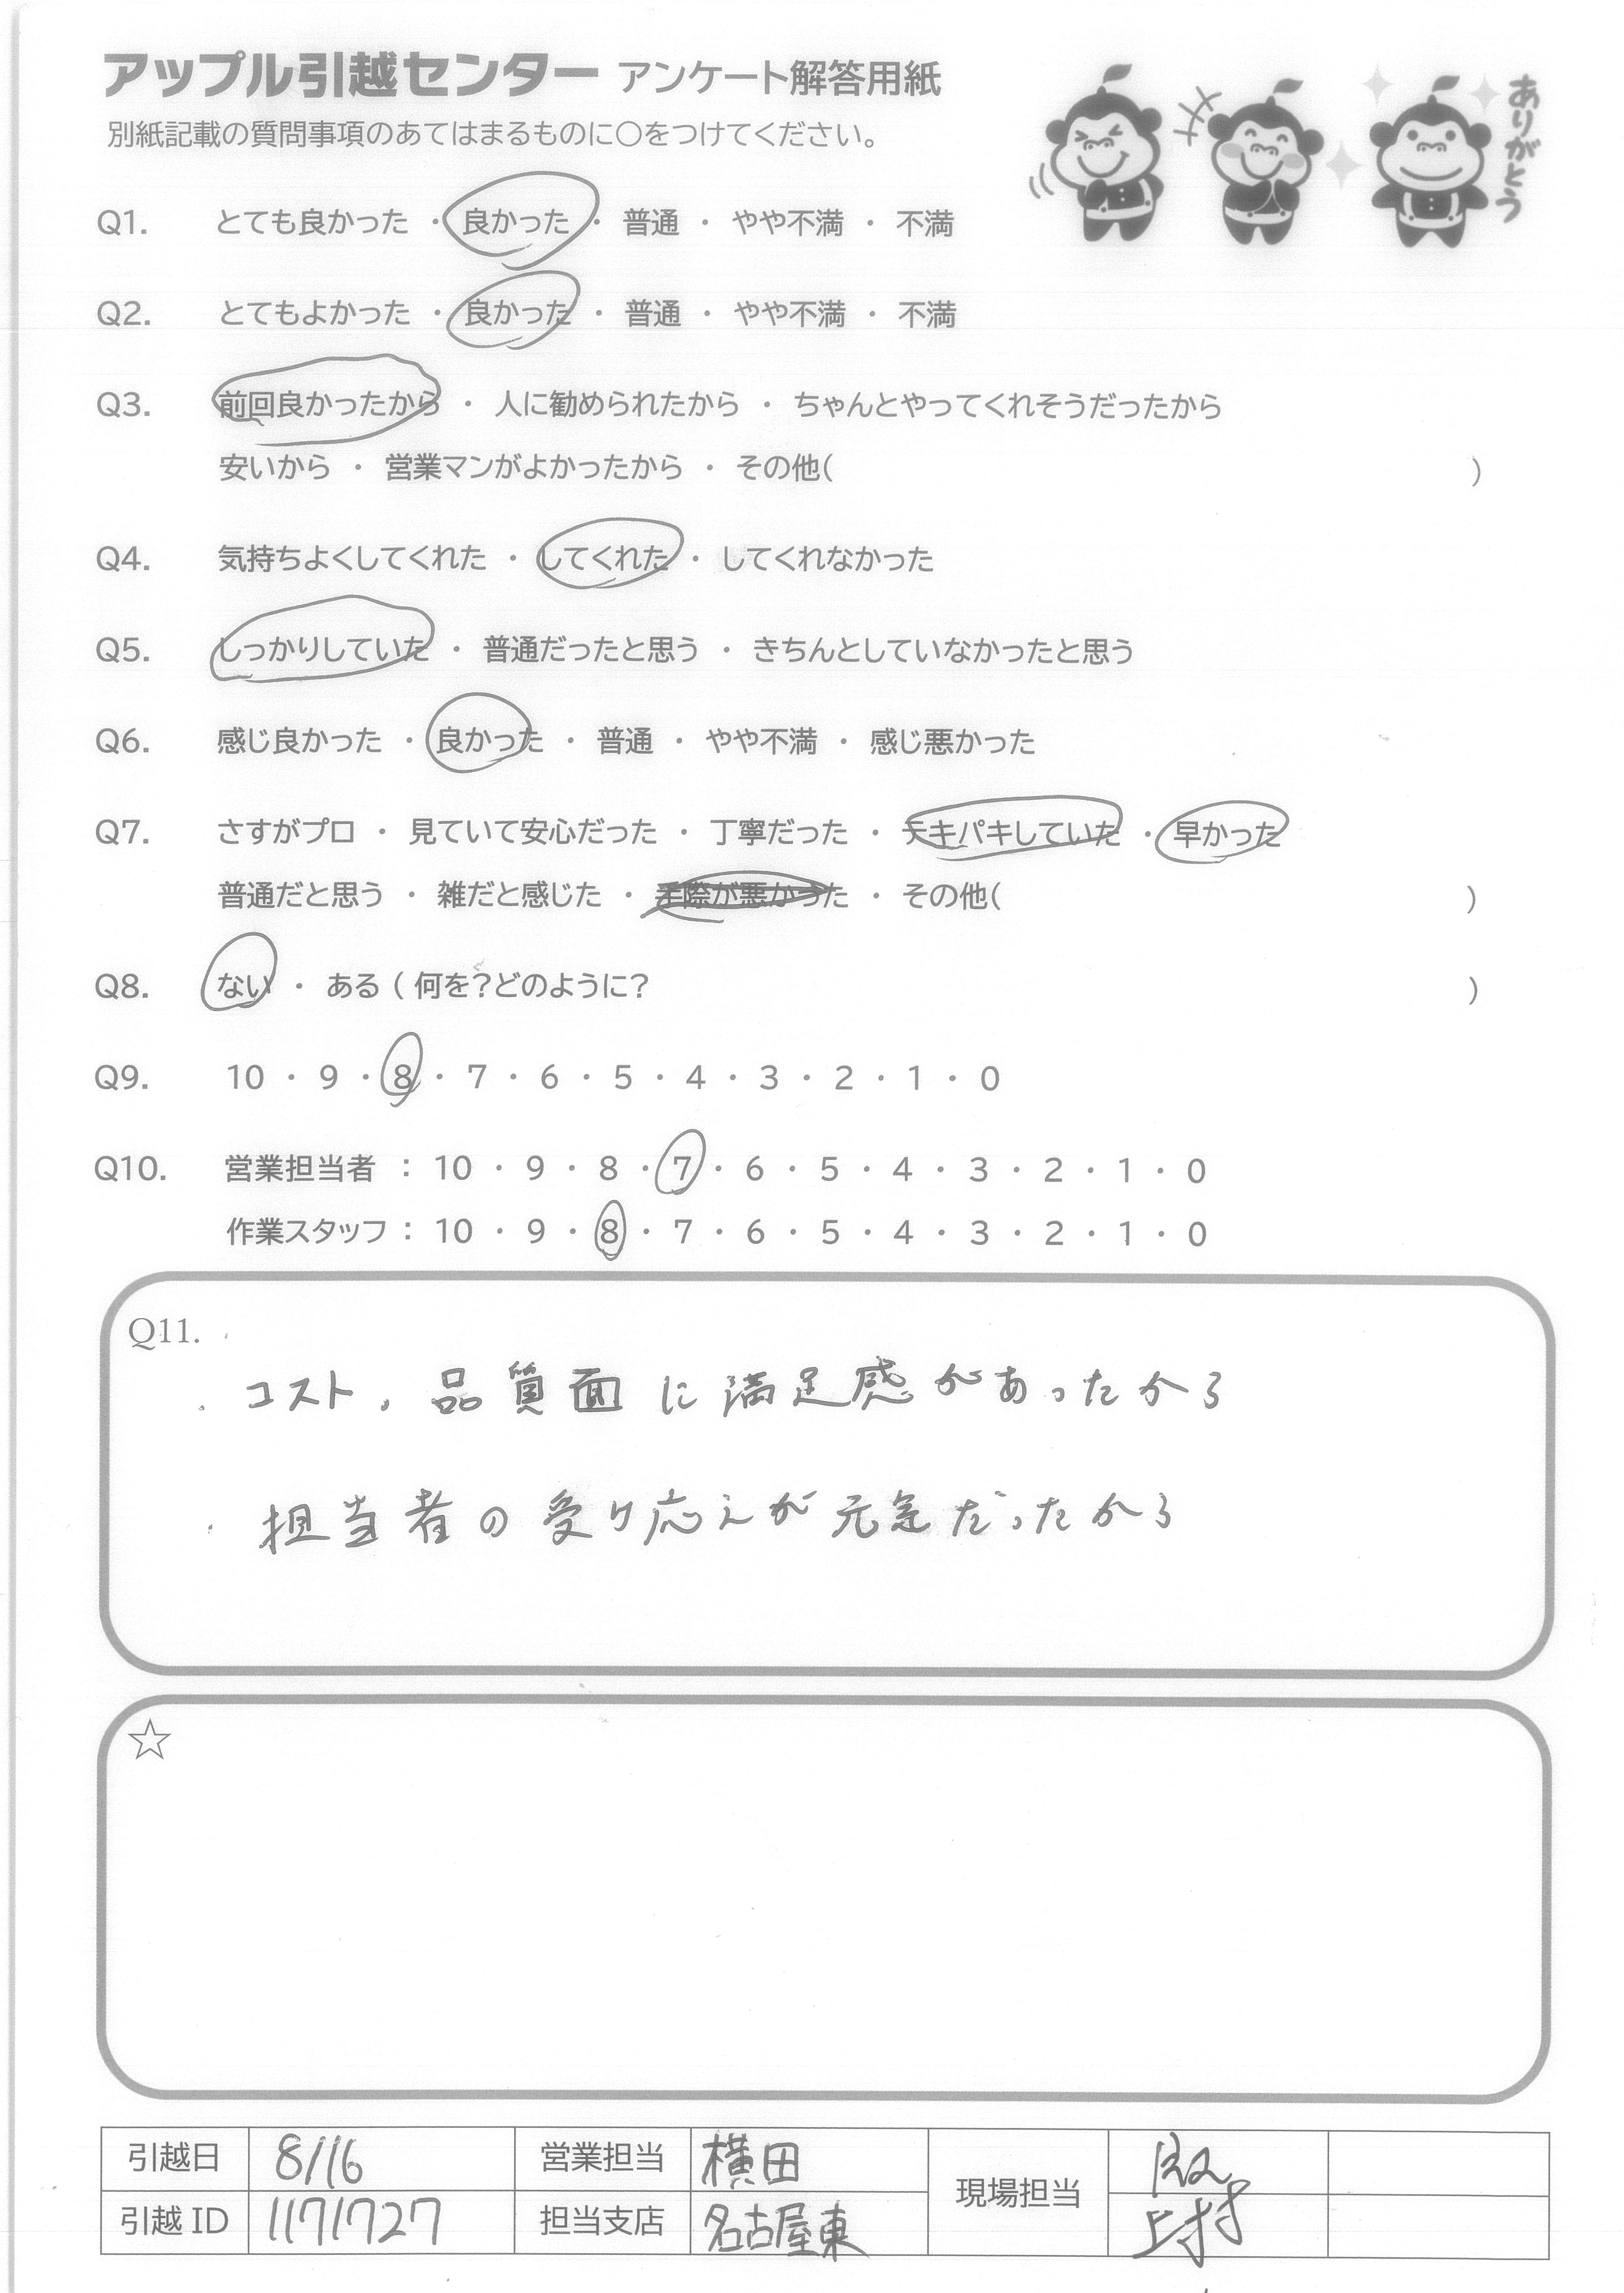 アップル引越センター アンケート解答用紙
ありがとう
別紙記載の質問事項のあてはまるものに○をつけてください。
Q1. とても良かった ・ 良かった ・ 普通 ・ やや不満 ・ 不満
Q2. とてもよかった ・ 良かった ・ 普通 ・ やや不満 ・ 不満
Q3. 前回良かったから ・ 人に勧められたから ・ ちゃんとやってくれそうだったから
安いから ・ 営業マンがよかったから ・ その他( )
Q4. 気持ちよくしてくれた ・ してくれた ・ してくれなかった
Q5. しっかりしていた ・ 普通だったと思う ・ きちんとしていなかったと思う
Q6. 感じ良かった ・ 良かった ・ 普通 ・ やや不満 ・ 感じ悪かった
Q7. さすがプロ ・ 見ていて安心だった ・ 丁寧だった ・ テキパキしていた ・ 早かった
普通だと思う ・ 雑だと感じた ・ 手際が悪かった ・ その他( )
Q8. ない ・ ある ( 何を?どのように? )
Q9. 10 ・ 9 ・ 8 ・ 7 ・ 6 ・ 5 ・ 4 ・ 3 ・ 2 ・ 1 ・ 0
Q10. 営業担当者 : 10 ・ 9 ・ 8 ・ 7 ・ 6 ・ 5 ・ 4 ・ 3 ・ 2 ・ 1 ・ 0
作業スタッフ : 10 ・ 9 ・ 8 ・ 7 ・ 6 ・ 5 ・ 4 ・ 3 ・ 2 ・ 1 ・ 0
Q11.
・コスト、品質面に満足感があったから
・担当者の受け応えが元気だったから
☆
引越日 8/16 営業担当 横田 現場担当
引越 ID 1171727 担当支店 名古屋東 上村